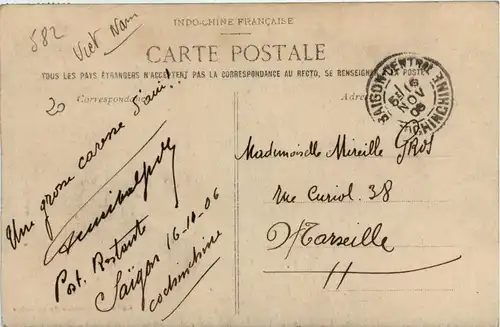 582
Viet Nam
INDO-CHINE FRANÇAISE
CARTE POSTALE
TOUS LES PAYS ÉTRANGERS N'ACCEPTENT PAS LA CORRESPONDANCE AU RECTO, SE RENSEIGNER POSTE
20
Correspondance
Adre
SAIGON-CENTRAL
16
NOV
06
CHINCHINE
Une grosse caresse d'ami!!
Post. Restante
Saïgon 16-10-06
cochinchine
Mademoiselle Mireille GROS
rue Curiol. 38
Marseille